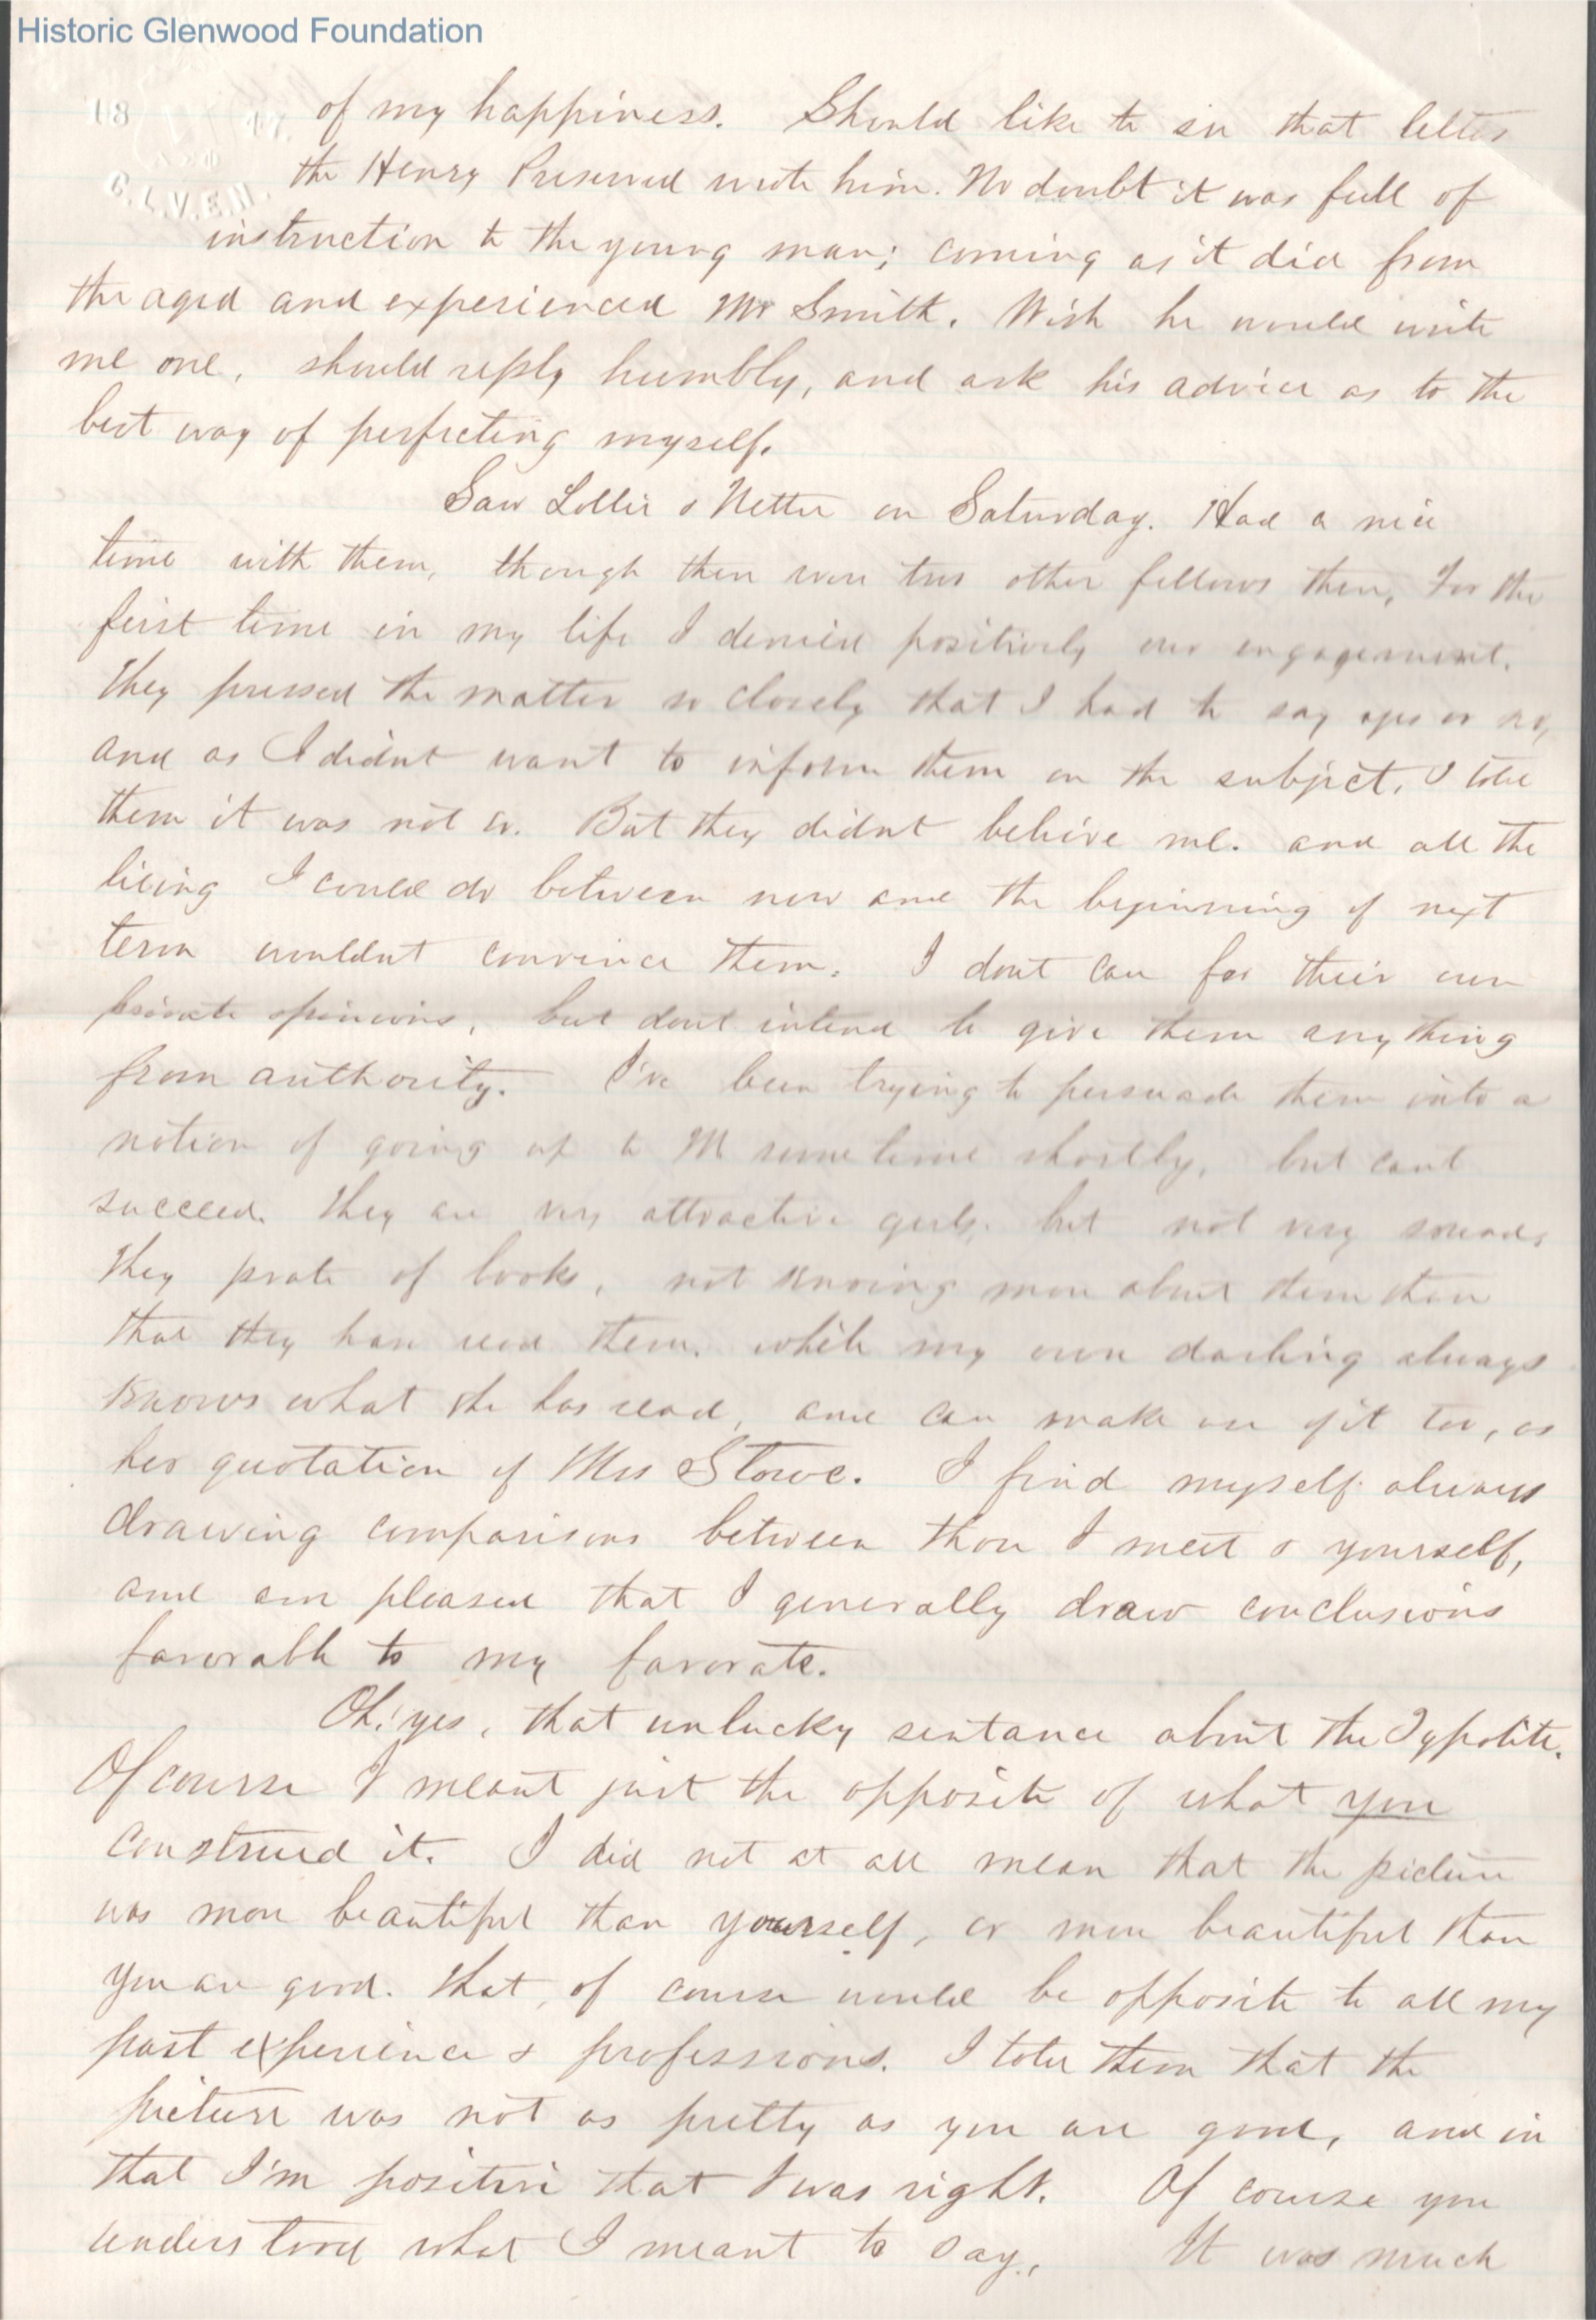 Historic Glenwood Foundation
18 17.
C.L.V.E.H.
of my happiness. Should like to see that letter
the Henry Preserved wrote him. No doubt it was full of
instruction to the young man; coming as it did from
the aged and experienced Mr Smith. Wish he would write
me one, should reply humbly, and ask his advice as to the
best way of perfecting myself.
Saw Lollie & Nettie on Saturday. Had a nice
time with them, though there were two other fellows there, For the
first time in my life I denied positively our engagement.
They pressed the matter so closely that I had to say yes or no,
and as I didnt want to inform them on the subject, I told
them it was not so. But they didnt believe me. and all the
lieing I could do between now and the beginning of next
term wouldnt convince them. I dont care for their own
private opinions, but dont intend to give them anything
from authority. I've been trying to persuade them into a
notion of going up to M some time shortly, but cant
succeed. They are very attractive girls, but not very sound.
They prate of books, not knowing more about them than
that they have read them. while my own darling always
knows what she has read, and can make use of it too, as
her quotation of Mrs Stowe. I find myself always
drawing comparisons between those I meet & yourself,
and am pleased that I generally draw conclusions
favorable to my favorate.
Oh! yes, that unlucky sentance about the
Of course I meant just the opposite of what you
construed it. I did not at all mean that the picture
was more beautiful than yourself, or more beautiful than
you are good. That, of course would be opposite to all my
past experience & professions. I told them that the
picture was not as pretty as you are good, and in
that I'm positive that I was right. Of course you
understood what I meant to say. It was much